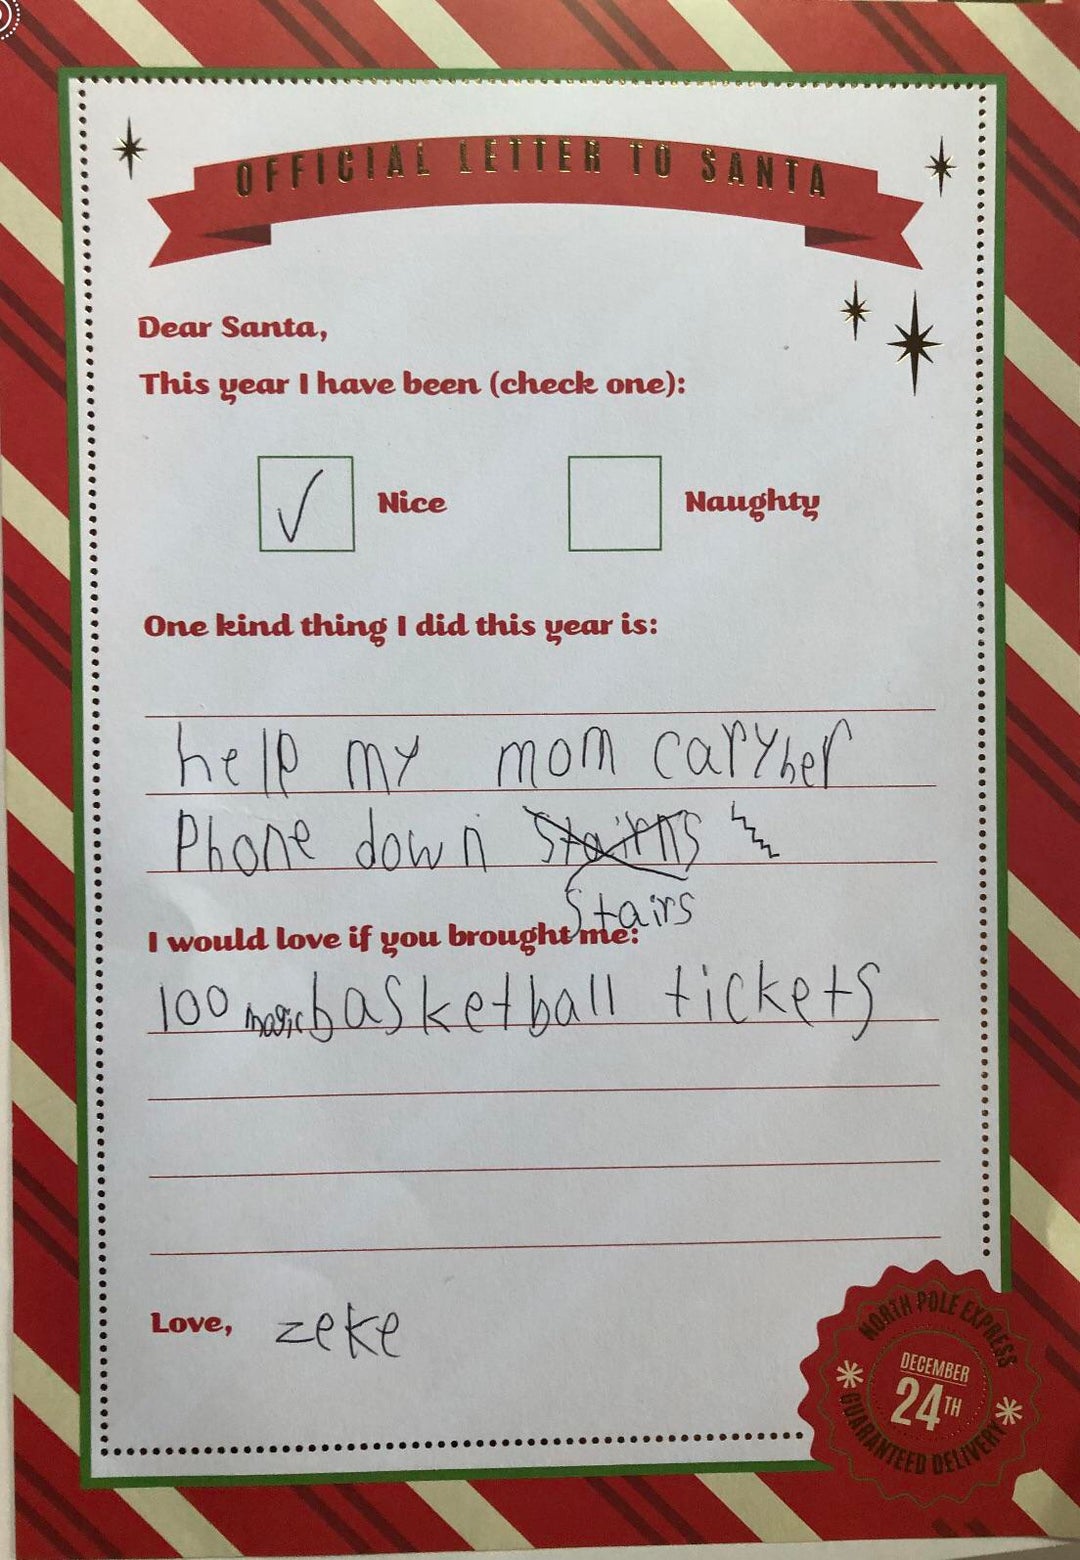 OFFICIAL LETTER TO SANTA
Dear Santa,
This year I have been (check one):
Nice Naughty
One kind thing I did this year is:
help my mom cary her
Phone down
Stairs
I would love if you brought me:
100 magic basketball tickets
Love, zeke
NORTH POLE EXPRESS
DECEMBER
24TH
GUARANTEED DELIVERY